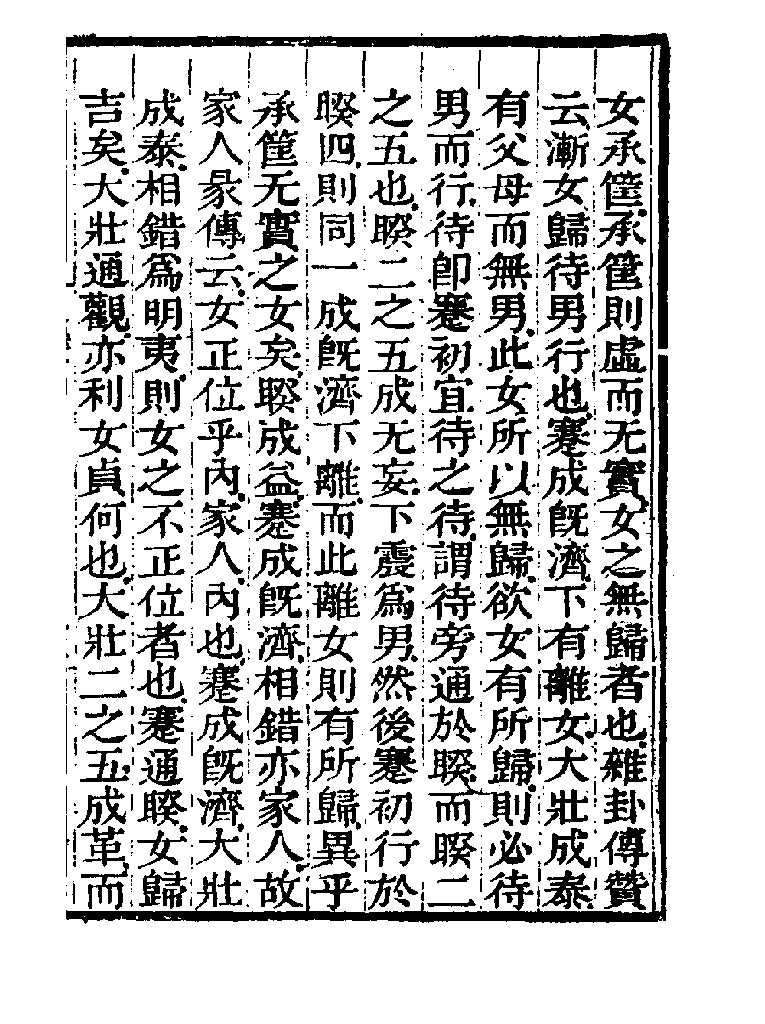 女承筐承筐則虛而无實女之無歸者也雜卦傳贊
云漸女歸待男行也蹇成旣濟下有離女大壯成泰
有父母而無男此女所以無歸欲女有所歸則必待
男而行待卽蹇初宜待之待謂待旁通於睽而睽二
之五也睽二之五成无妄下震爲男然後蹇初行於
睽四則同一成旣濟下離而此離女則有所歸異乎
承筐无實之女矣睽成益蹇成旣濟相錯亦家人故
家人彖傳云女正位乎內家人內也蹇成旣濟大壯
成泰相錯爲明夷則女之不正位者也蹇通睽女歸
吉矣大壯通觀亦利女貞何也大壯二之五成革而